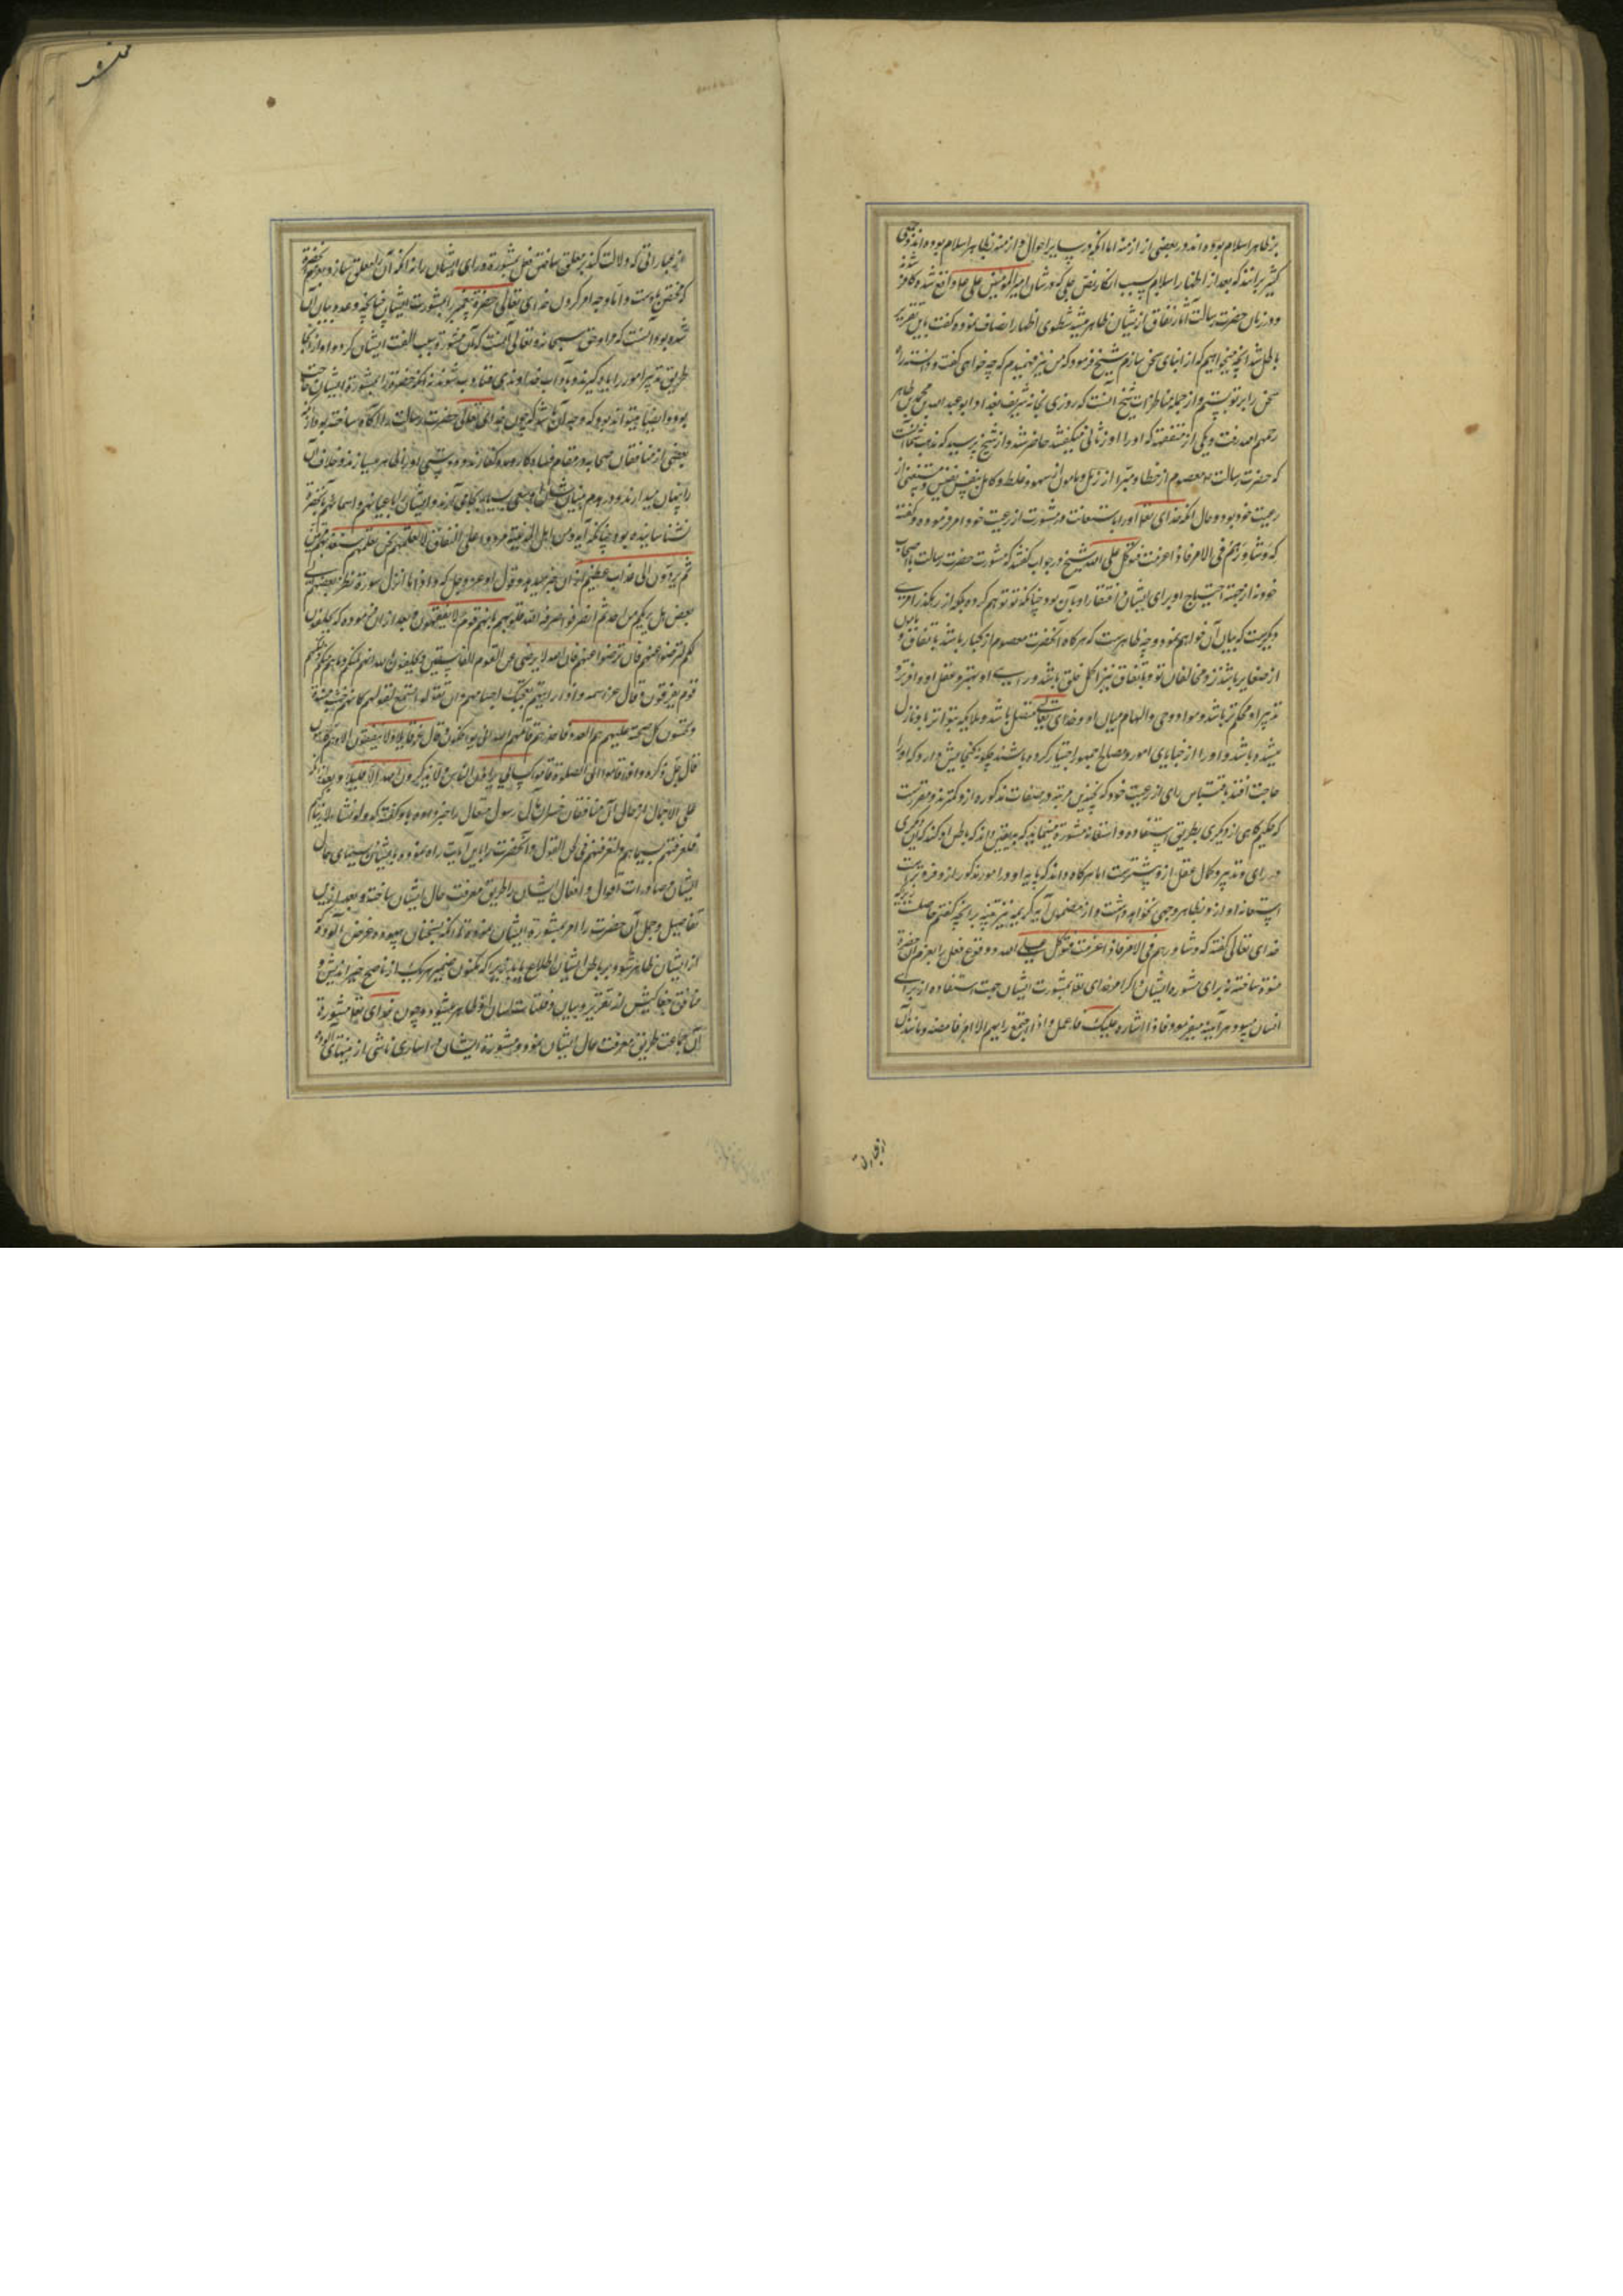 بر ظاهر اسلام بوده اند در بعضی از ازمنه اما آنکه در سایر احوال و ازمنه بظاهر اسلام بوده اند
بعد از اظهار اسلام بسبب انکار نص جلی که در شان امیر المؤمنین علی واقع شد کافر
و در زمان حضرت رسالت آثار نفاق از یشان ظاهر میشد شطوی اظهار انصاف نموده گفت باین تقریر
باطل شد آنچه میخواهیم که از ابنای سخن سازم شیخ فرمود که من نیز فهمیدم که چه خواهی گفت
سخن را بر تو بستم و از جمله مناظرات شیخ آنست که روزی بخانه شریف بغداد ابو عبد الله محمد بن طاهر
رحمهم الله رفت و یکی از متفقهه که او را ورثانی میگفتند حاضر شد و از شیخ پرسید که نه مذهب شما آنست
که حضرت رسالت معصوم از خطا و مبرا از زلل و مامون از سهو و غلط و کامل بنفس نفیس و مستغنی از
رعیت خود بود و حال آنکه خدای تعالی او را باستعانت و مشورت از رعیت خود امر فرموده و گفته
که وشاورهم فی الامر فاذا عزمت فتوکل علی الله شیخ در جواب گفتند که مشورت حضرت رسالت با اصحاب
خود نه از جهت احتیاج او برای ایشان و افتقار او بآن بود چنانکه تو توهم کرده بلکه از رهگذر امری
دیگرست که بیان آن خواهم نمود و چه ظاهرست که هرگاه آنحضرت معصوم از کبایر باشد باتفاق و
از صغایر باشد نزد مخالفان تو و باتفاق نیز اکمل خلق باشد و رای او بهتر و عقل او وافرتر و
تدبیر او محکم تر باشد و مواد وحی و الهام میان او و خدای تعالی متصل باشد و ملایکه بتواتر باو نازل
میشده باشد و او را از خبایای امور و مصالح جمهور اخبار کرده باشند چگونه گنجایش دارد که او را
حاجت افتد باقتباس رای از رعیت خود که بچندین مرتبه در صفات مذکوره ازو کمترند و مقررست
که حکیم گاهی از دیگری بطریق استفاده و استعانت مشورة مینماید که بیقین داند که یا ظن او کند که آن دیگری
در رای و تدبیر و کمال عقل ازو بیشترست اما هرگاه داند که پایه او در امور مذکور ازو فروترست
استعانه او ازو بظاهر وجهی نخواهد داشت و از مضمون آیه کریمه نیز تنبیه بر آنچه گفتیم حاصلست
خدای تعالی گفته که وشاورهم فی الامر فاذا عزمت فتوکل علی الله و وقوع فعل را بعزم آنحضرة
منوط ساخته نه برای مشوره ایشان و اگر امر خدای تعالی بمشورت ایشان جهت استفاده از برای
ایشان میبود هر آینه میفرمود فاذا اشاروا علیک فاعمل و اذا اجتمع رایهم الامر فامضه و مانند آن
از عبارات
از عباراتی که دلالت کند بر معلق ساختن فعل بمشورة و رای ایشان را نه آنکه آن را معلق سازد بعزم آنحضرة
که مختص باوست و اما وجه امر کردن خدای تعالی حضرة پیغمبر را بمشورت ایشان چنانچه وعده بیان آن
شده بود آنست که مراد حق سبحانه و تعالی آنست که آن مشورة سبب الفت ایشان گردد
طریق تدبیر امور را یاد گیرند و بآداب خداوندی متادب شوند نه آنکه حضرة را بمشورة ایشان حاجت
بود و ایضا میتواند بود که وجه آن باشد که چون خدای تعالی حضرت رسالت را آگاه ساخته بود که
بعضی از منافقان صحابه در مقام فساد
را پنهان میدارند و در هدم بنیان
نشناسانیده بود چنانکه آیه و من اهل المدینة مردوا علی النفاق لا تعلمهم نحن نعلمهم سنعذبهم مرتین
ثم یردون الی عذاب عظیم ازان خبر میدهد و قول او عز و جل که و اذا ما انزل سورة نظر بعضهم الی
بعض هل یریکم من احد ثم انصرفوا صرف الله قلوبهم بانهم قوم لا یفقهون و بعد ازان فرموده که یحلفون
لکم لترضوا عنهم فان ترضوا عنهم فان الله لا یرضی عن القوم الفاسقین و یحلفون بالله انهم لمنکم و ما هم منکم و لکنهم
قوم یفرقون و قال عز اسمه و اذا رایتهم تعجبک اجسامهم و ان یقولوا تسمع لقولهم کانهم خشب مسندة
یحسبون کل صیحة علیهم هم العدو فاحذرهم قاتلهم الله انی یؤفکون و قال
قال جل ذکره و اذا قاموا الی الصلوة قاموا کسالی یراؤن الناس و لا یذکرون الله الا قلیلا و بعد از آنکه
علی الاجمال از حال آن منافقان رسول متعال را خبر داده باو گفته که و لو نشاء لاریناکهم
فلعرفتهم بسیماهم و لتعرفنهم فی لحن القول و آنحضرت را باین آیت راه نموده بایشان سیمای حال
ایشان و صادرات اقوال و افعال ایشان را طریق معرفت حال ایشان ساخته و بعد ازین
تفاصیل و جمل آن حضرت را امر بمشورة ایشان نموده تا آنکه بسخنان بیهوده و غرض آلوده که
از ایشان ظاهر شود بر باطن ایشان اطلاع یابد زیرا که مکنون ضمیر هر یک از ناصح خیر اندیش و
منافق از تقریر و بیان و فلتات لسان او ظاهر میشود و چون خدای تعالی مشورة
آن جماعت طریق معرفت حال ایشان نمود و بمشورة ایشان در اساری